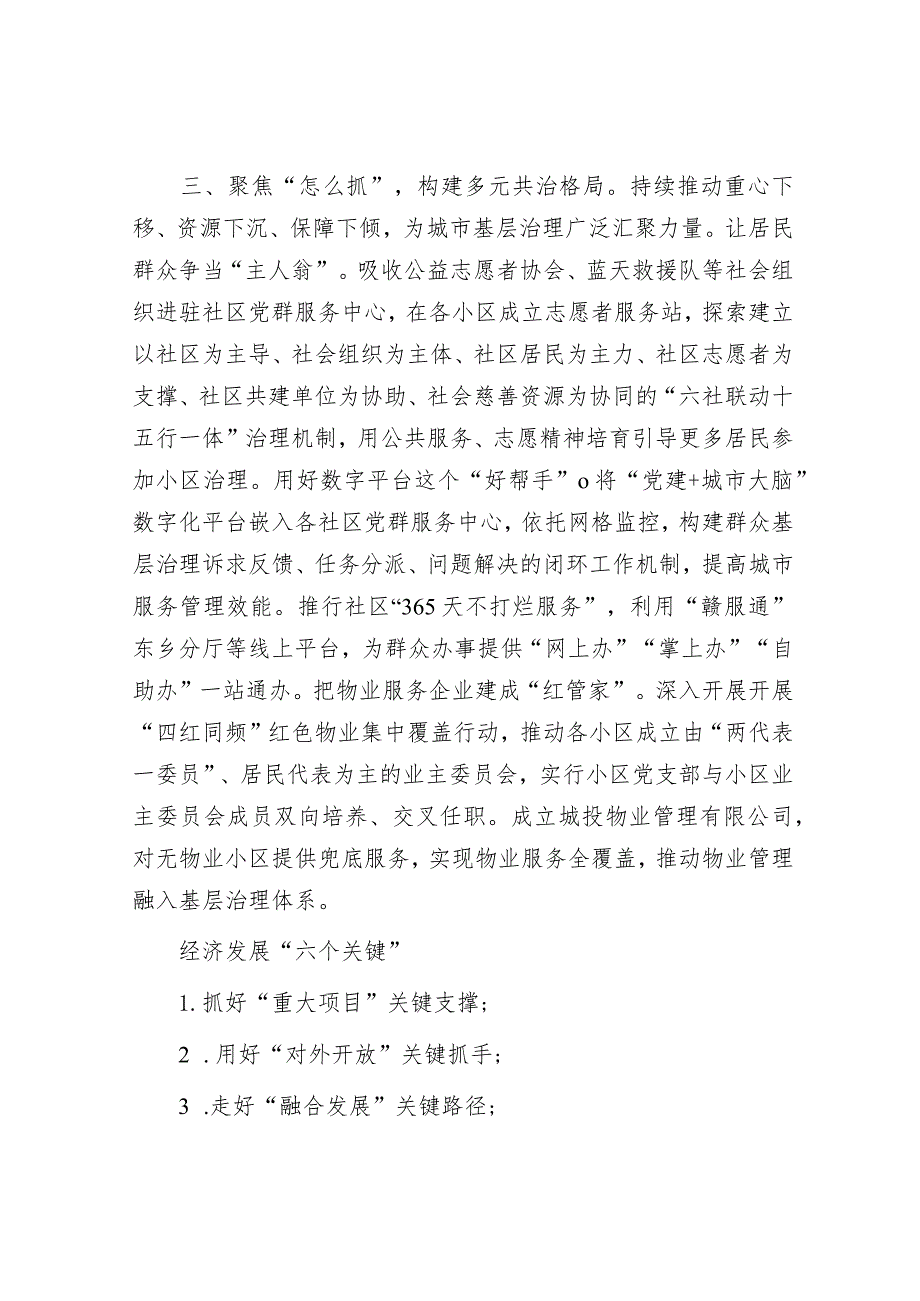 三、聚焦“怎么抓”，构建多元共治格局。持续推动重心下
移、资源下沉、保障下倾，为城市基层治理广泛汇聚力量。让居民
群众争当“主人翁”。吸收公益志愿者协会、蓝天救援队等社会组
织进驻社区党群服务中心，在各小区成立志愿者服务站，探索建立
以社区为主导、社会组织为主体、社区居民为主力、社区志愿者为
支撑、社区共建单位为协助、社会慈善资源为协同的“六社联动十
五行一体”治理机制，用公共服务、志愿精神培育引导更多居民参
加小区治理。用好数字平台这个“好帮手”o将“党建+城市大脑”
数字化平台嵌入各社区党群服务中心，依托网格监控，构建群众基
层治理诉求反馈、任务分派、问题解决的闭环工作机制，提高城市
服务管理效能。推行社区“365天不打烂服务”，利用“赣服通”
东乡分厅等线上平台，为群众办事提供“网上办”“掌上办”“自
助办”一站通办。把物业服务企业建成“红管家”。深入开展开展
“四红同频”红色物业集中覆盖行动，推动各小区成立由“两代表
一委员”、居民代表为主的业主委员会，实行小区党支部与小区业
主委员会成员双向培养、交叉任职。成立城投物业管理有限公司，
对无物业小区提供兜底服务，实现物业服务全覆盖，推动物业管理
融入基层治理体系。
经济发展“六个关键”
1.抓好“重大项目”关键支撑；
2 .用好“对外开放”关键抓手；
3 .走好“融合发展”关键路径；